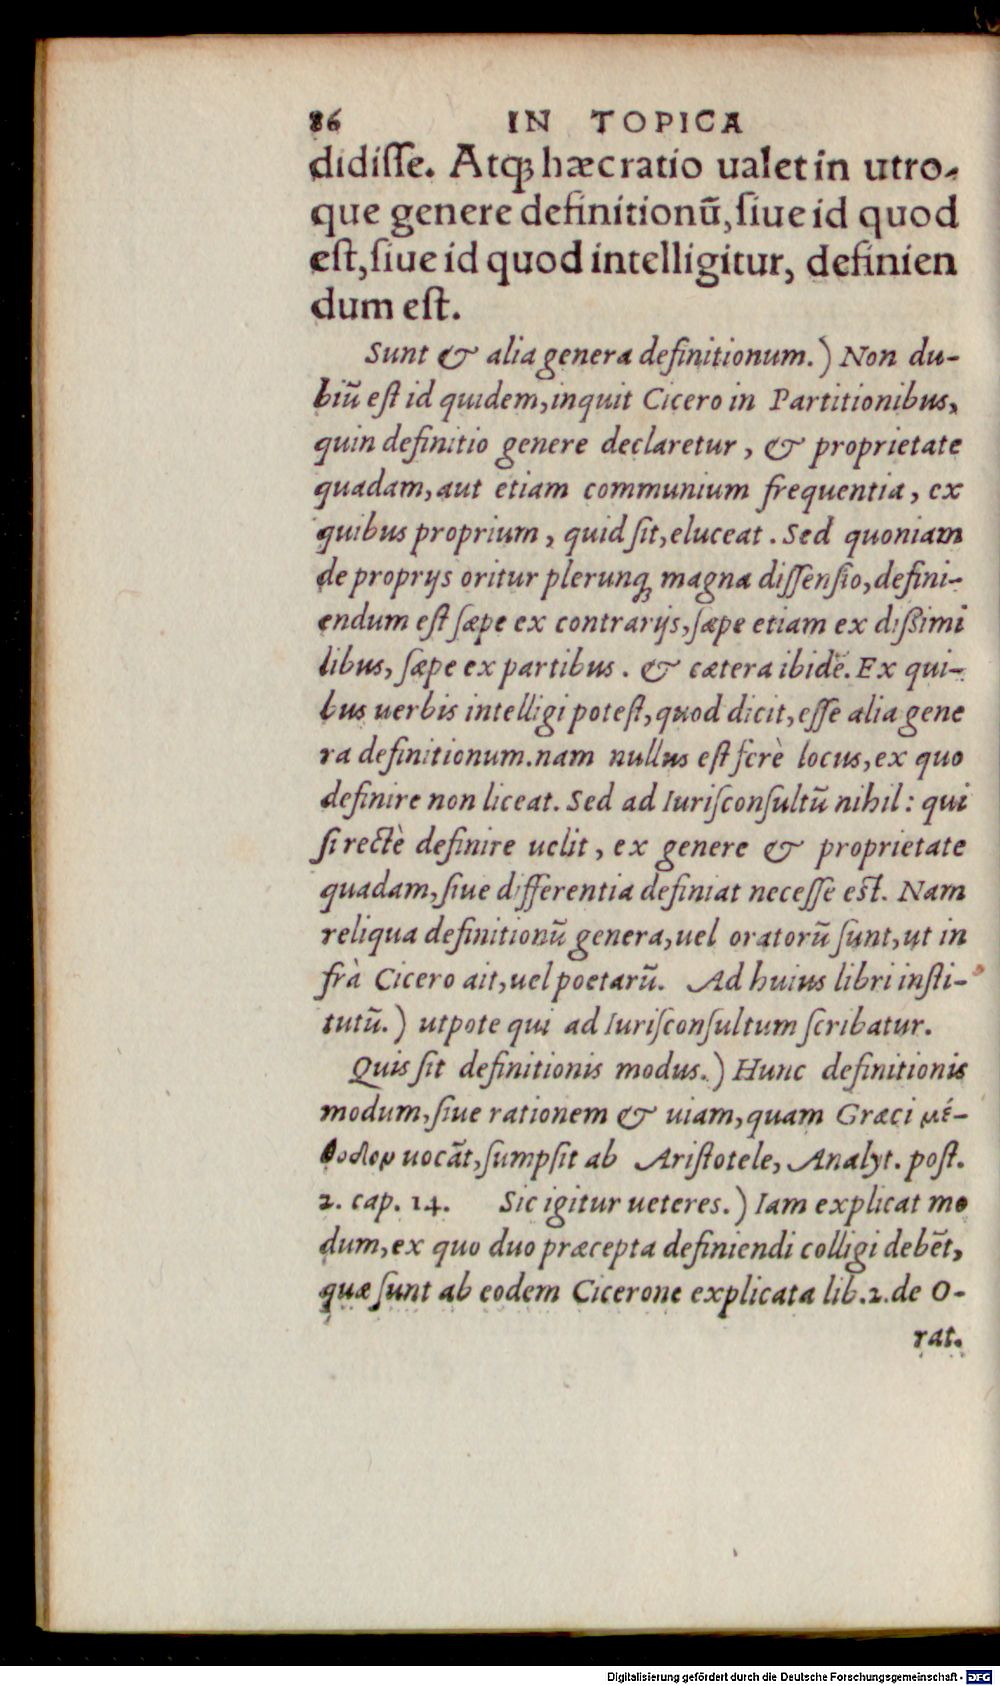 86 IN TOPICA
didiſſe. Atq́ꝫ hæc ratio ualet in utro-
que genere definitionũ, ſiue id quod
eſt, ſiue id quod intelligitur, definien
dum eſt.
Sunt & alia genera definitionum.) Non du-
biũ eſt id quidem, inquit Cicero in Partitionibus,
quin definitio genere declaretur, & proprietate
quadam, aut etiam communium frequentia, ex
quibus proprium, quid ſit, eluceat. Sed quoniam
de proprijs oritur plerunqꝫ magna diſſenſio, defini-
endum eſt ſæpe ex contrarijs, ſæpe etiam ex dißimi
libus, ſæpe ex partibus. & cætera ibidẽ. Ex qui-
bus uerbis intelligi poteſt, quod dicit, eſſe alia gene
ra definitionum. nam nullus eſt ferè locus, ex quo
definire non liceat. Sed ad Iuriſconſultũ nihil: qui
ſi rectè definire uelit, ex genere & proprietate
quadam, ſiue differentia definiat neceſſe eſt. Nam
reliqua definitionũ genera, uel oratorũ ſunt, ut in
frà Cicero ait, uel poetarũ. Ad huius libri inſti-
tutũ.) utpote qui ad Iuriſconſultum ſcribatur.
Quis ſit definitionis modus.) Hunc definitionis
modum, ſiue rationem & uiam, quam Græci μέ-
θοδον uocãt, ſumpſit ab Ariſtotele, Analyt. poſt.
2. cap. 14. Sic igitur ueteres.) Iam explicat mo
dum, ex quo duo præcepta definiendi colligi debẽt,
quæ ſunt ab eodem Cicerone explicata lib. 2. de O-
rat.
Digitalisierung gefördert durch die Deutsche Forschungsgemeinschaft - DFG